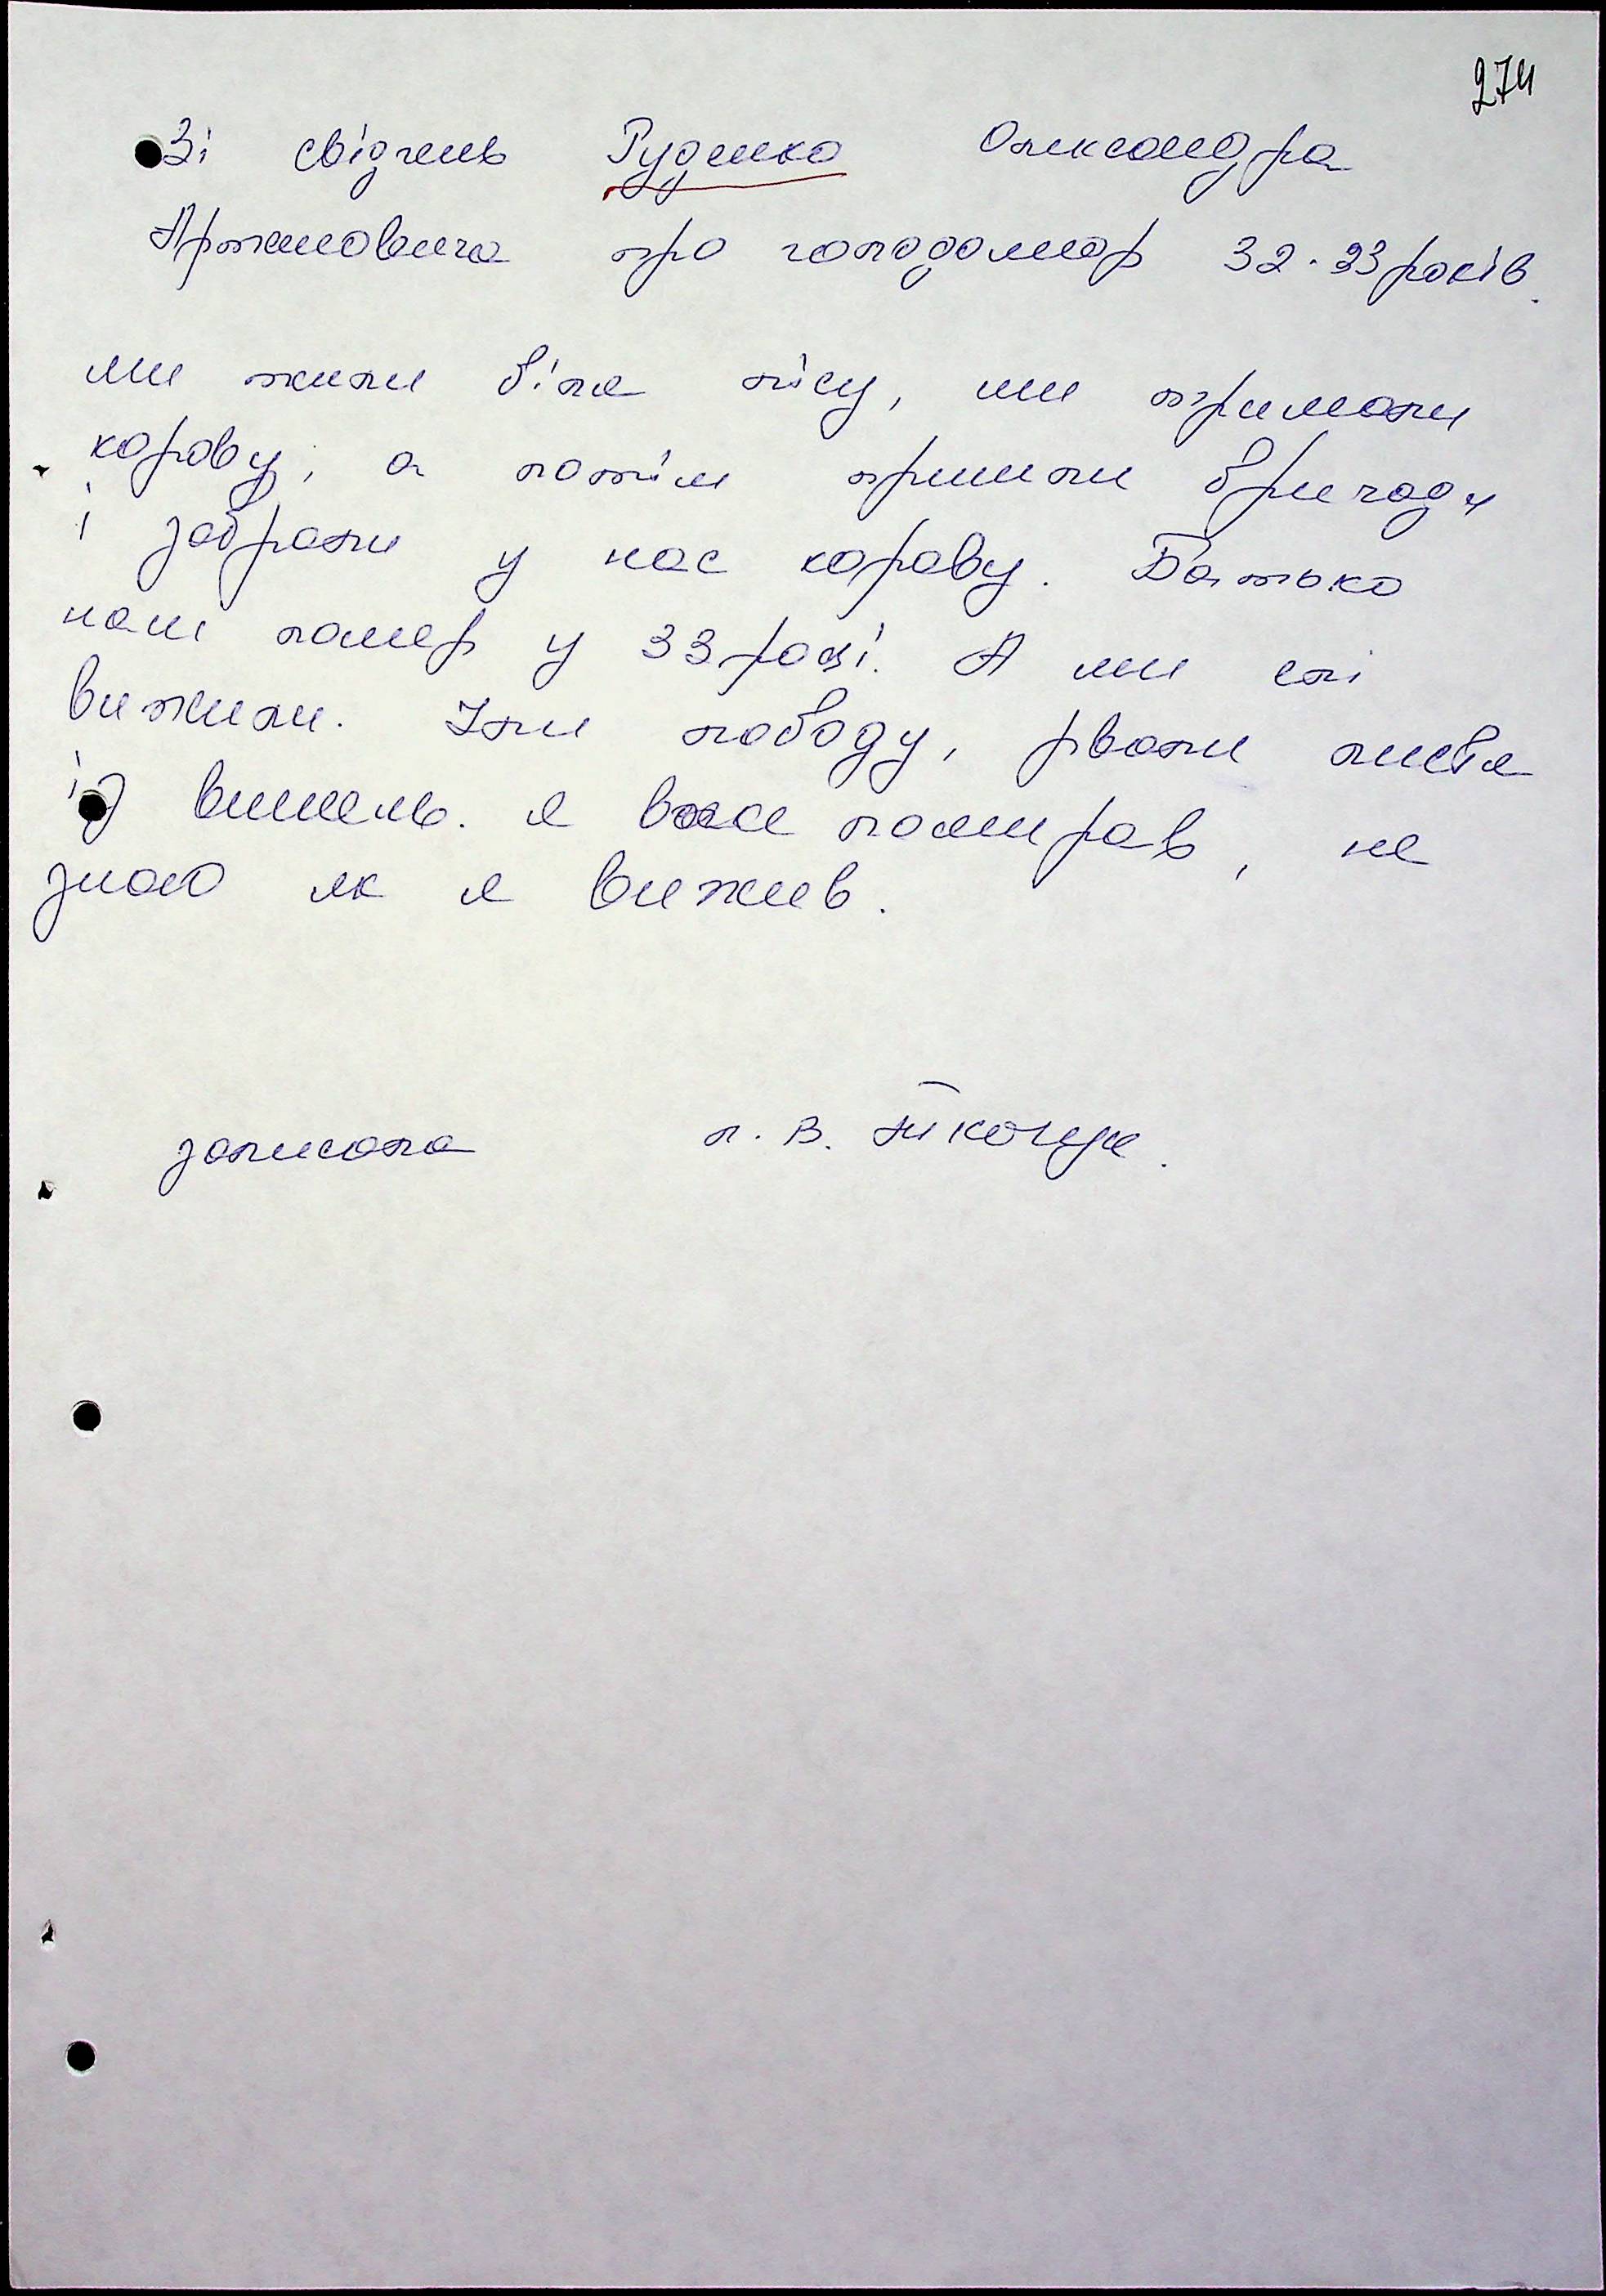 274
Зі свідчень Руденко Олександра
про голодомор 32-33 років.
ми жили біля лісу, ми тримали
корову, а потім прийшли бригади
і забрали у нас корову. Батько
наш помер у 33 році. А ми всі
вижили. Їли лободу, рвали листя
із вишень. я вже помирав, не
знаю як я вижив.
записала л. В.